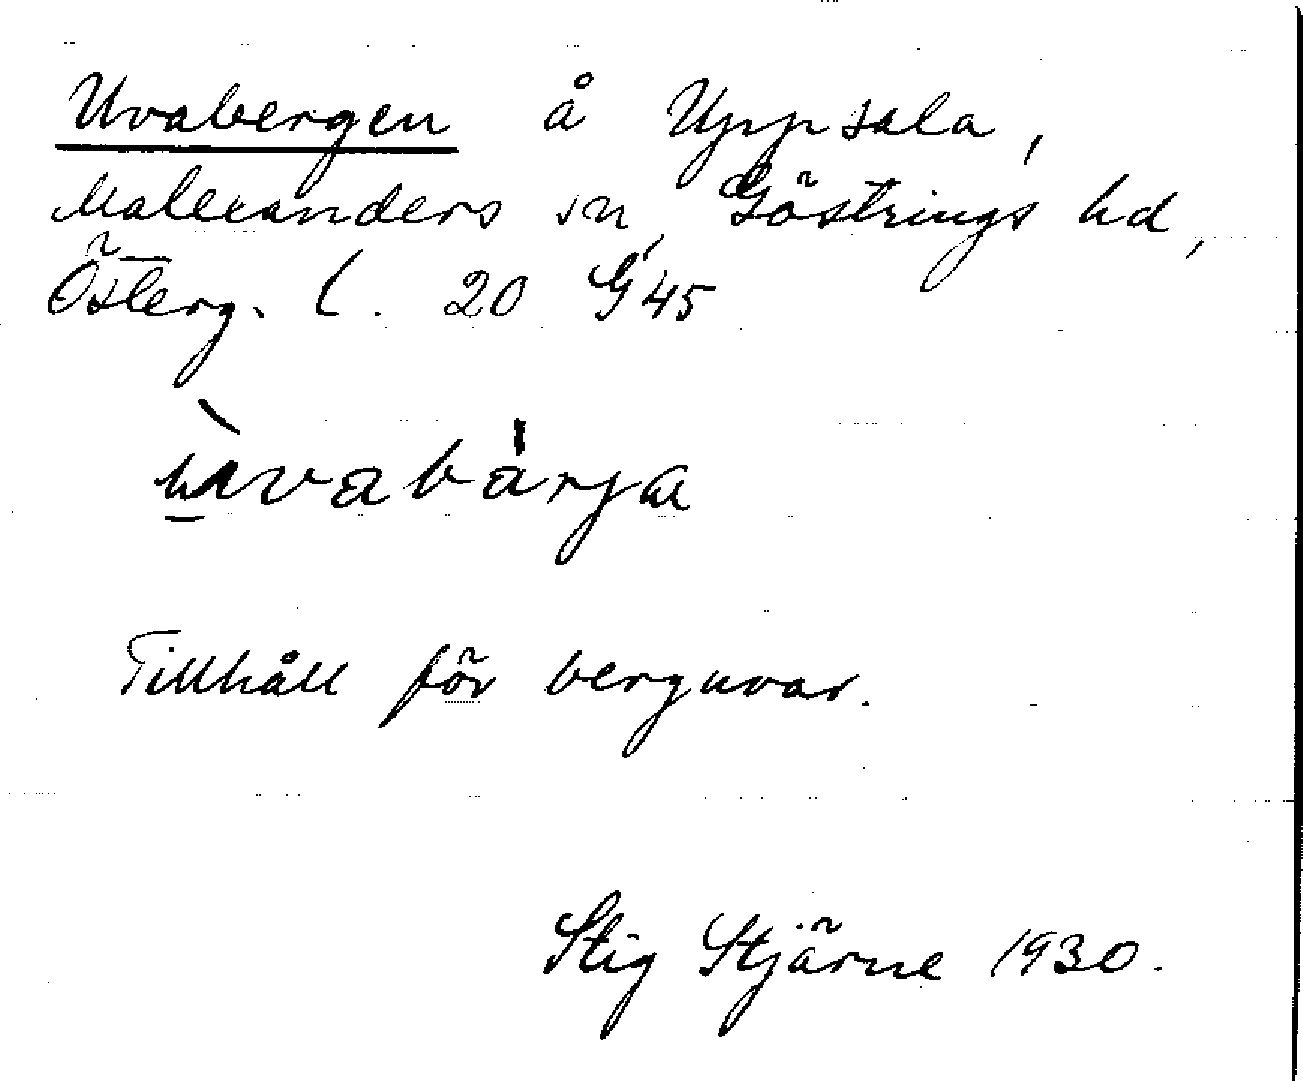 Uvabergen å Uppsala,
Malexanders sn, Göstrings hd,
Österg. l. 20 G 45
ùvabàrja
Tillhåll för berguvar.
Stig Stjärne 1930.